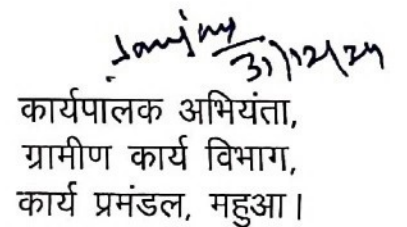 31/12/24
कार्यपालक अभियंता,
ग्रामीण कार्य विभाग,
कार्य प्रमंडल, महुआ।